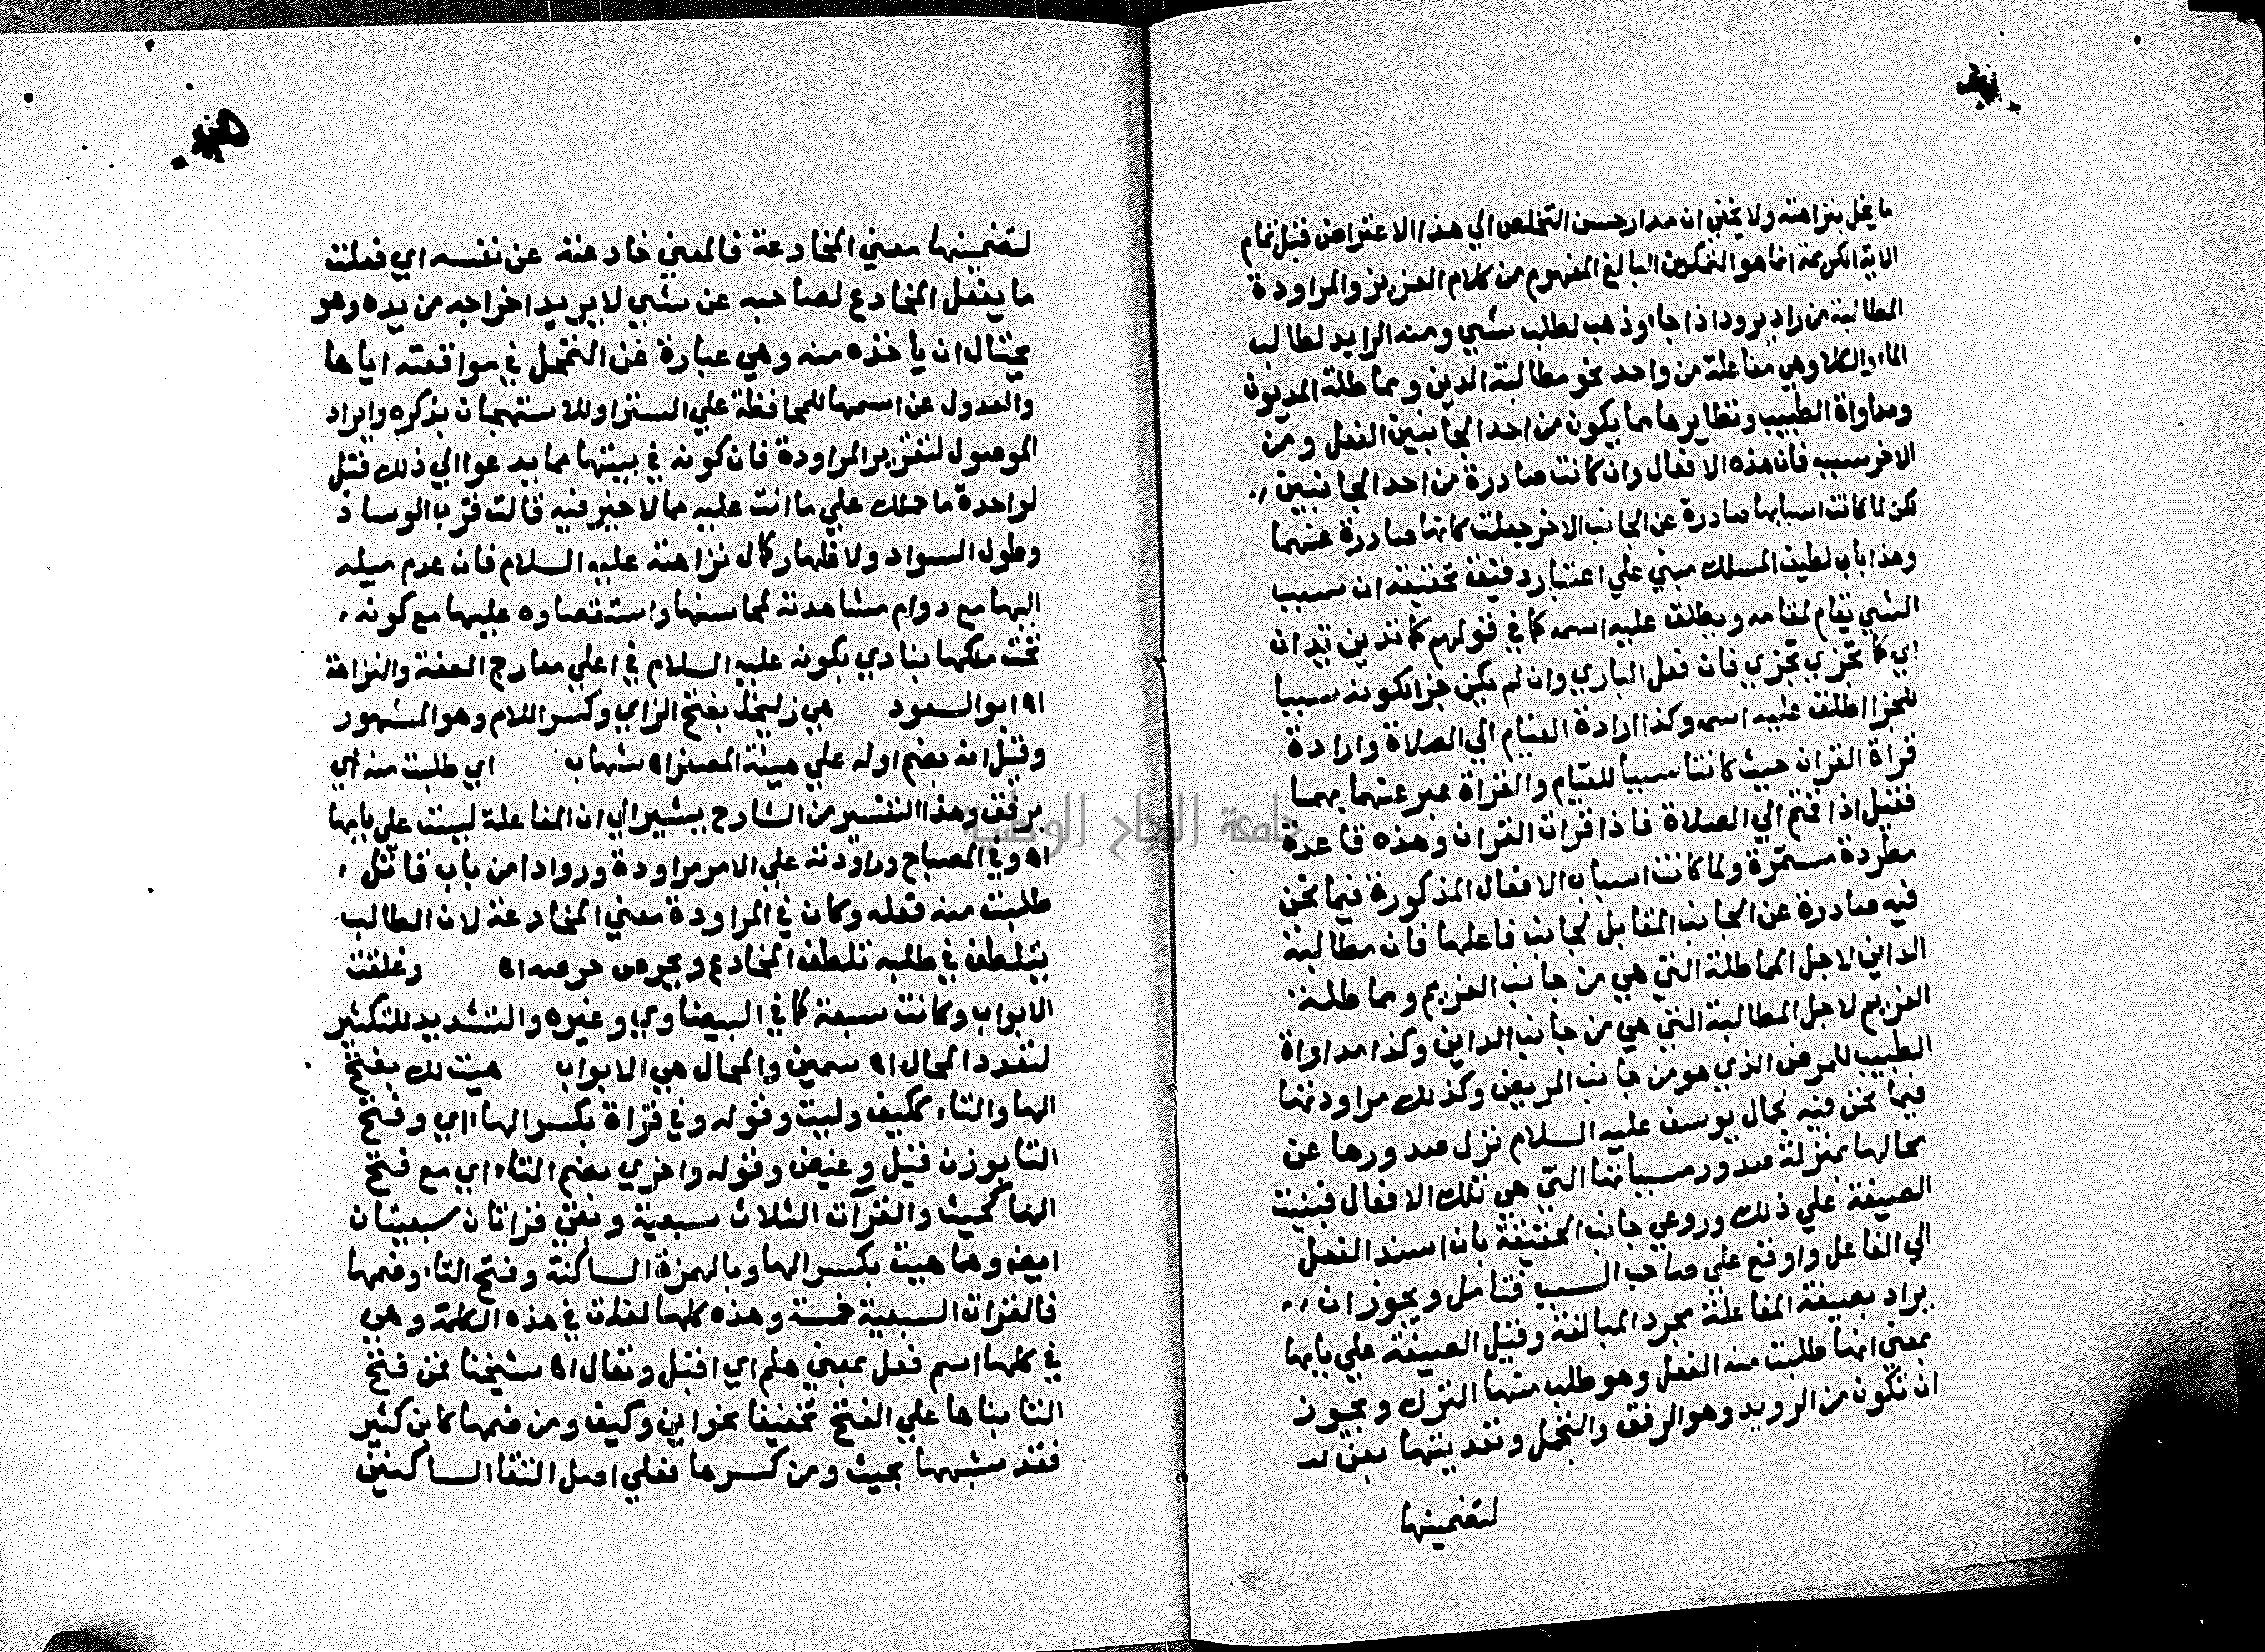 ما يخل بنزاهته ولا يخفي ان مدار حسن التخلص الي هذا الاعتراض قبل تمام
الاية الكريمة انما هو التمكين البالغ المفهوم من كلام العزيز والمراودة
المطالبة من راد يرود اذا جاء وذهب لطلب شي ومنه الرايد لطالب
الماء والكلا وهي مفاعلة من واحد نحو مطالبة الدين ومماطلة المديون
ومداواة الطبيب ونظايرها مما يكون من احد الجانبين الفعل ومن
الاخر سببه فان هذه الافعال وان كانت صادرة من احد الجانبين
لكن لما كانت اسبابها صادرة عن الجانب الاخر جعلت كانها صادرة عنهما
وهذا باب لطيف المسلك مبني علي اعتبار دقيقة تحقيقه ان سبب
الشي يقام مقامه ويطلق عليه اسمه كما في قولهم كما تدين تدان
اي كما تجزي تجزي فان فعل البادي وان لم يكن جزا لكونه سببا
للجزا اطلق عليه اسمه وكذا ارادة القيام الي الصلاة وارادة
قراة القران حيث كانتا سببا للقيام والقراة عبر عنهما بهما
فقيل اذا قمتم الي الصلاة فاذا قرات القران وهذه قاعدة
مطردة مستمرة ولما كانت اسباب الافعال المذكورة فيما نحن
فيه صادرة عن الجانب المقابل لجانب فاعلها فان مطالبة
الداين لاجل المماطلة التي هي من جانب الغريم ومماطلة
الغريم لاجل المطالبة التي هي من جانب الداين وكذا مداواة
الطبيب للمرض الذي هو من جانب المريض وكذلك مراودتها
فيما نحن فيه لجمال يوسف عليه السلام نزل صدورها عن
محالها بمنزلة صدور مسبباتها التي هي تلك الافعال فبنيت
الصيغة علي ذلك وروعي جانب الحقيقة بان اسند الفعل
الي الفاعل واوقع علي صاحب السبب فتامل ويجوز ان
يراد بصيغة المفاعلة مجرد المبالغة وقيل الصيغة علي بابها
بمعني انها طلبت منه الفعل وهو طلب منها الترك ويجوز
ان تكون من الرويد وهو الرفق والتحمل وتعديتها بعن لـ
لتضمينها
لتضمينها معني المخادعة فالمعني خادعته عن نفسه اي فعلت
ما يفعل المخادع لصاحبه عن شي لا يريد اخراجه من يده وهو
يحتال ان ياخذه منه وهي عبارة عن التمحل في مواقعته اياها
والعدول عن اسمها للمحافظة علي الستر او للاستهجان بذكره وايراد
الموصول لتقرير المراودة فان كونه في بيتها مما يدعوا الي ذلك قيل
لواحدة ما حملك علي ما انت عليه مما لا خير فيه قالت قرب الوساد
وطول السواد ولاظهار كمال نزاهته عليه السلام فان عدم ميله
اليها مع دوام مشاهدته لمحاسنها واستعصاوه عليها مع كونه
تحت ملكها ينادي بكونه عليه السلام في اعلي معارج العفة والنزاهة
اه ابو السعود هي زليخا بفتح الزاي وكسر اللام وهو المشهور
وقيل انه بضم اوله علي هيئة المصغر اه شهاب اي طلبت منه اي
برفق وهذا التفسير من الشارح يشير الي ان المفاعلة ليست علي بابها
اه وفي المصباح وراودته علي الامر مراودة ورواد امن باب قاتل
طلبت منه فعله وكان في المراودة معني المخادعة لان الطالب
يتلطف في طلبه تلطف المخادع ويحرص حرصه اه وغلقت
الابواب وكانت سبعة كما في البيضاوي وغيره والتشديد للتكثير
لتعدد المحال اه سمين والمحال هي الابواب هيت لك بفتح
الها والتاء ككيف وليت وقوله وفي قراة بكسر الها اي وفتح
التا بوزن قيل وغيض وقوله واخري بضم التاء اي مع فتح
الها كحيث والقرات الثلاث سبعية وبقي قراتان سبعيتان
ايضا وهما هيت بكسر الها وبالهمزة الساكنة وفتح التاء وضمها
فالقرات السبعية خمسة وهذه كلها لغات في هذه الكلمة وهي
في كلها اسم فعل بمعني هلم اي اقبل وتعال اه شيخنا فمن فتح
التا بناها علي الفتح تخفيفا نحو اين وكيف ومن ضمها كابن كثير
فقد شبهها بحيث ومن كسرها فعلي اصل التقا الساكنين
جامعة النجاح الوطنية